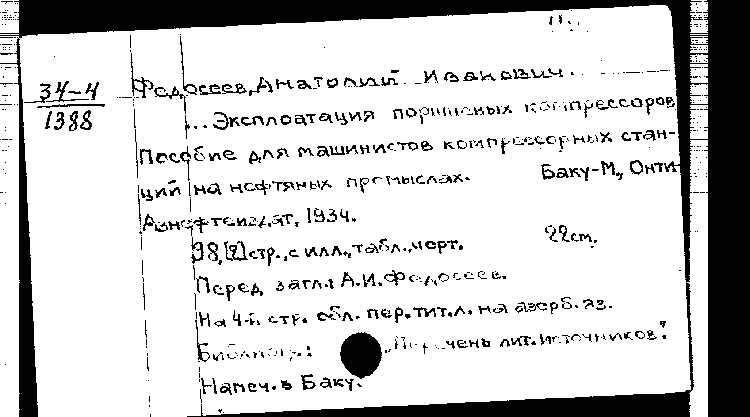 34-4
1388
Федосеев, Анатолий Иванович.
... Эксплоатация поршневых компрессоров
Пособие для машинистов компрессорных стан-
ций на нефтяных промыслах. Баку-М., Онти-
Азнефтеиздат, 1934.
98,[2] стр., с илл., табл., черт. 22 см.
Перед загл.: А.И. Федосеев.
На 4-й стр. обл. пер. тит. л. на азерб. яз.
Библиогр.: „Перечень лит. источников".
Напеч. в Баку.